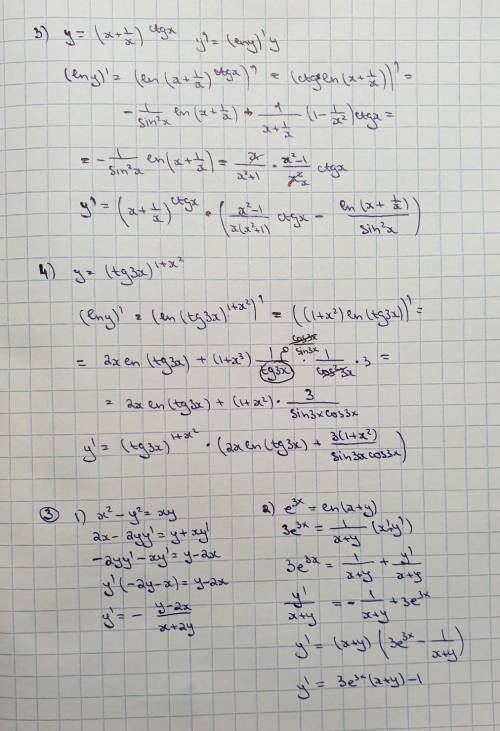 3) y = (x + 1/x)^ctgx    y' = (lny)' y
(lny)' = (ln(x + 1/x)^ctgx)' = (ctgx ln(x + 1/x))' =
- 1/sin²x ln(x + 1/x) + 1/(x + 1/x) (1 - 1/x²) ctgx =
= - 1/sin²x ln(x + 1/x) = x/(x²+1) · (x²-1)/x² ctgx
y' = (x + 1/x)^ctgx · ((x²-1)/(x(x²+1)) ctgx - ln(x + 1/x)/sin²x)
4) y = (tg3x)^(1+x²)
(lny)' = (ln(tg3x)^(1+x²))' = ((1+x²) ln(tg3x))' =
= 2x ln(tg3x) + (1+x³) 1/tg3x cos3x/sin3x · 1/cos²3x · 3 =
= 2x ln(tg3x) + (1+x²) · 3/(sin3xcos3x)
y' = (tg3x)^(1+x²) · (2x ln(tg3x) + 3(1+x²)/(sin3xcos3x))
③ 1) x² - y² = xy
2x - 2yy' = y + xy'
-2yy' - xy' = y - 2x
y'(-2y - x) = y - 2x
y' = - (y-2x)/(x+2y)
2) e^3x = ln(x+y)
3e^3x = 1/(x+y) (x'y')
3e^3x = 1/(x+y) + y'/(x+y)
y'/(x+y) = - 1/(x+y) + 3e^3x
y' = (x+y) (3e^3x - 1/(x+y))
y' = 3e^3x (x+y) - 1